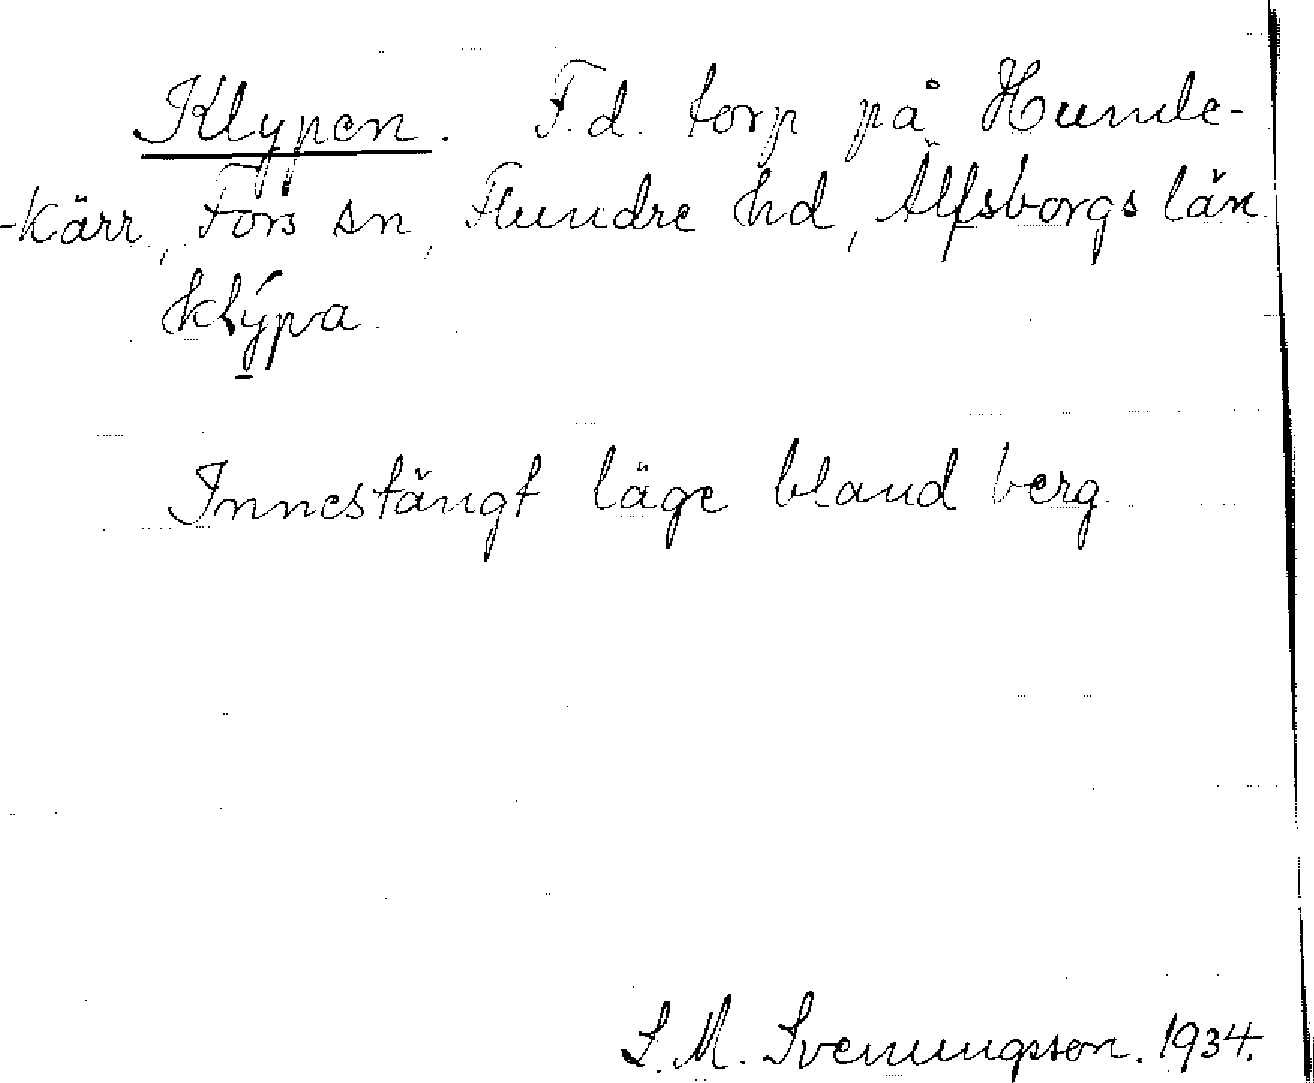 Klypen. F.d. torp på Humle-
-kärr, Fors sn, Flundre hd, Älfsborgs län
klýpa
Innestängt läge bland berg
S. M. Svenungsson. 1934.